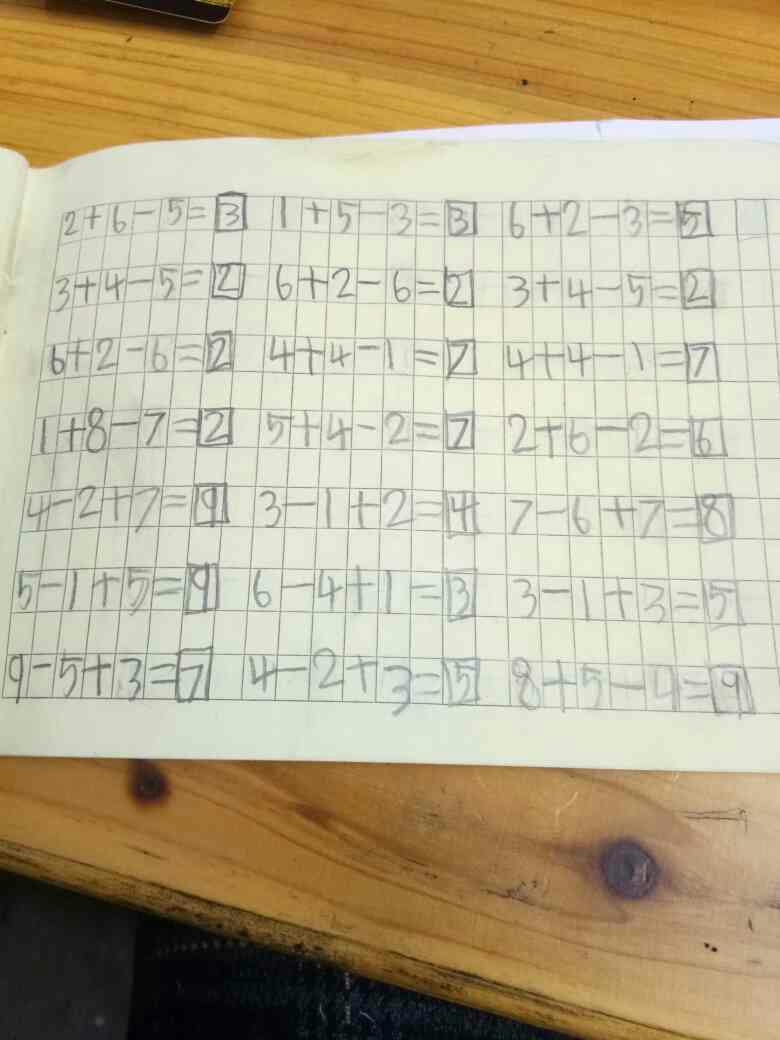 2+6-5=3 1+5-3=3 6+2-3=5
3+4-5=2 6+2-6=2 3+4-5=2
6+2-6=2 4+4-1=7 4+4-1=7
1+8-7=2 5+4-2=7 2+6-2=6
4-2+7=9 3-1+2=4 7-6+7=8
5-1+5=9 6-4+1=3 3-1+3=5
9-5+3=7 4-2+3=5 8+5-4=9